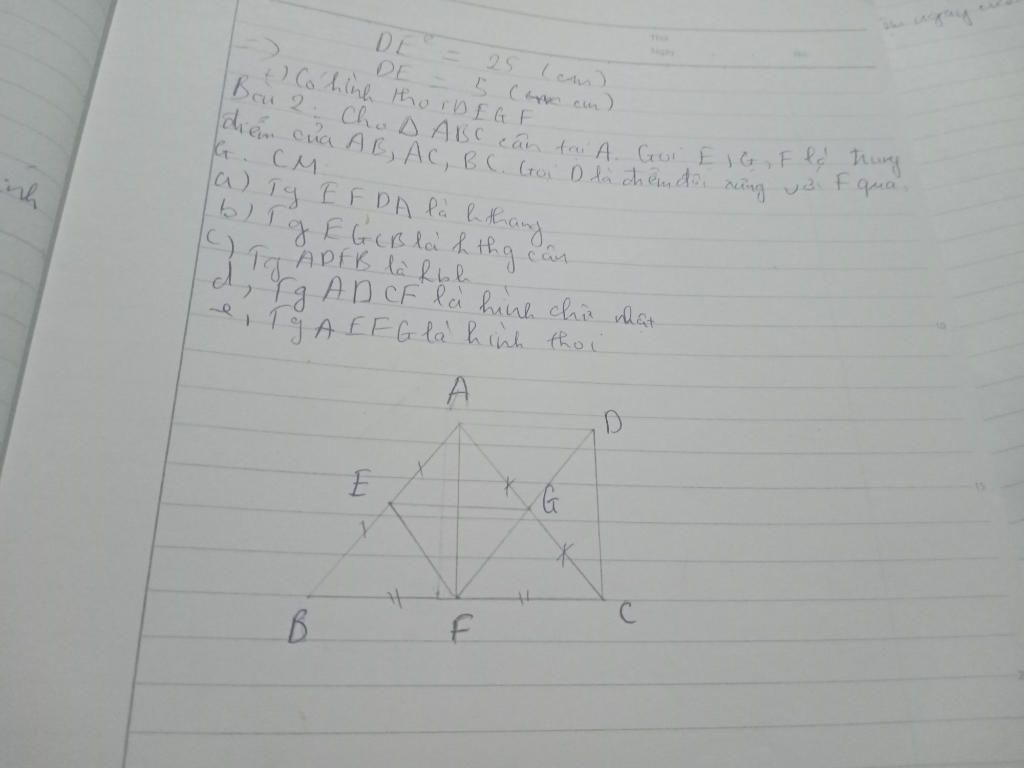 DE² = 25 (cm)
=> DE = 5 (cm)
t) Có hình thoi DEGF
Bài 2: Cho Δ ABC cân tại A. Gọi E, G, F là trung
điểm của AB, AC, BC. Gọi D là điểm đối xứng với F qua
G. CM
a) Tg EFDA là hthang
b) Tg EGCB là hthg cân
c) Tg ADFB là hbh
d, Tg ADCF là hình chữ nhật
e, Tg AEFG là hình thoi
A
D
E
G
B
F
C